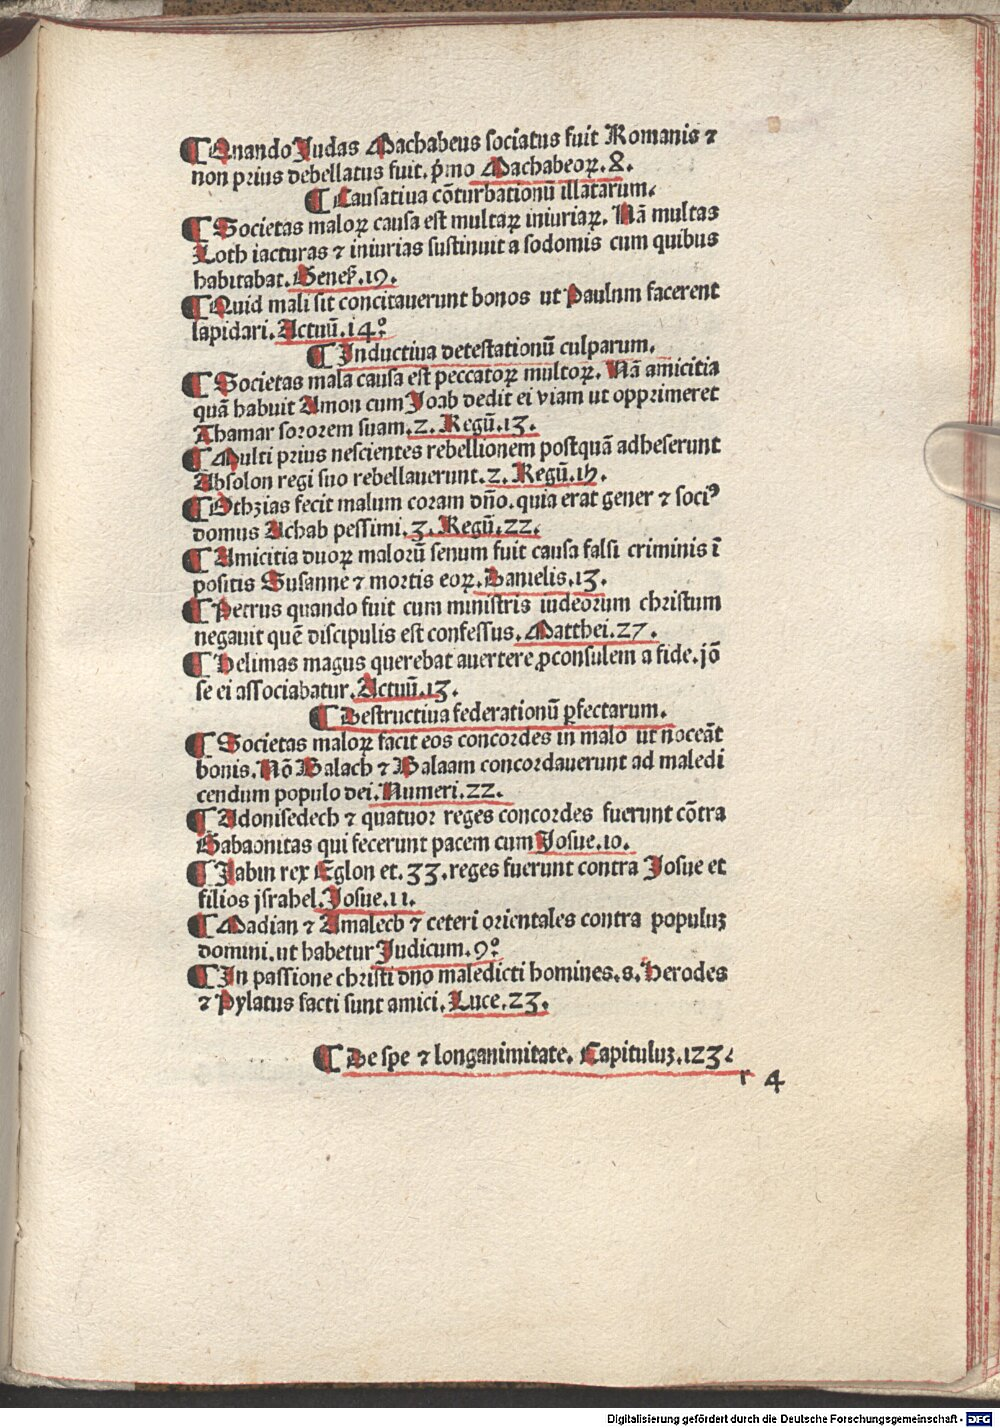 ¶ Quando Judas Machabeus sociatus fuit Romanis ⁊
non prius debellatus fuit. p̄mo Machabeoꝝ. 8.
¶ Causatiua cōturbationū illatarum.
¶ Societas maloꝝ causa est multaꝝ iniuriaꝝ. Nā multas
Loth iacturas ⁊ iniurias sustinuit a sodomis cum quibus
habitabat. Geneſ. 19.
¶ Quid mali sit concitauerunt bonos ut Paulum facerent
lapidari. Actuū. 14°.
¶ Inductiua detestationū culparum.
¶ Societas mala causa est peccatoꝝ multoꝝ. Nā amicitia
quā habuit Amon cum Joab dedit ei viam ut opprimeret
Thamar sororem suam. 2. Regū. 13.
¶ Multi prius nescientes rebellionem postquā adheserunt
Absolon regi suo rebellauerunt. 2. Regū. 15.
¶ Othzias fecit malum coram dn̄o. quia erat gener ⁊ sociꝰ
domus Achab pessimi. 3. Regū. 22.
¶ Amicitia duoꝝ malorū senum fuit causa falsi criminis ī
positis Susanne ⁊ mortis eoꝝ. Danielis. 13.
¶ Petrus quando fuit cum ministris iudeorum christum
negauit quē discipulis est confessus. Matthei. 27.
¶ Helimas magus querebat auertere ꝓconsulem a fide. jō
se ei associabatur. Actuū. 13.
¶ Destructiua federationū ꝑfectarum.
¶ Societas maloꝝ facit eos concordes in malo ut noceāt
bonis. Nō Balach ⁊ Balaam concordauerunt ad maledi
cendum populo dei. Numeri. 22.
¶ Adonisedech ⁊ quatuor reges concordes fuerunt cōtra
Gabaonitas qui fecerunt pacem cum Josue. 10.
¶ Jabin rex Eglon et. 33. reges fuerunt contra Josue et
filios jsrahel. Josue. 11.
¶ Madian ⁊ Amalech ⁊ ceteri orientales contra populuꝫ
domini. ut habetur Judicum. 9°.
¶ In passione christi duo maledicti homines. s. Herodes
⁊ Pylatus facti sunt amici. Luce. 23.
¶ De spe ⁊ longanimitate. Capituluꝫ. 123.
r 4
Digitalisierung gefördert durch die Deutsche Forschungsgemeinschaft - DFG